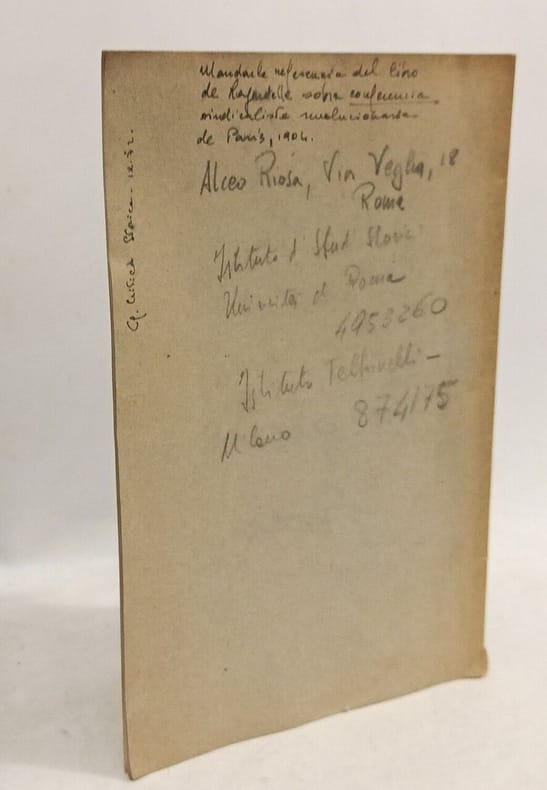 Mandarle referencia del libro
de Lagardelle sobre conferencia
sindicalista revolucionaria
de París, 1904.
Alceo Riosa, Via Veglia, 18
Roma
Istituto di Studi Slavici
Università di Roma
4953260
Istituto Feltrinelli —
Milano 874175
Cf. Critica Storica -